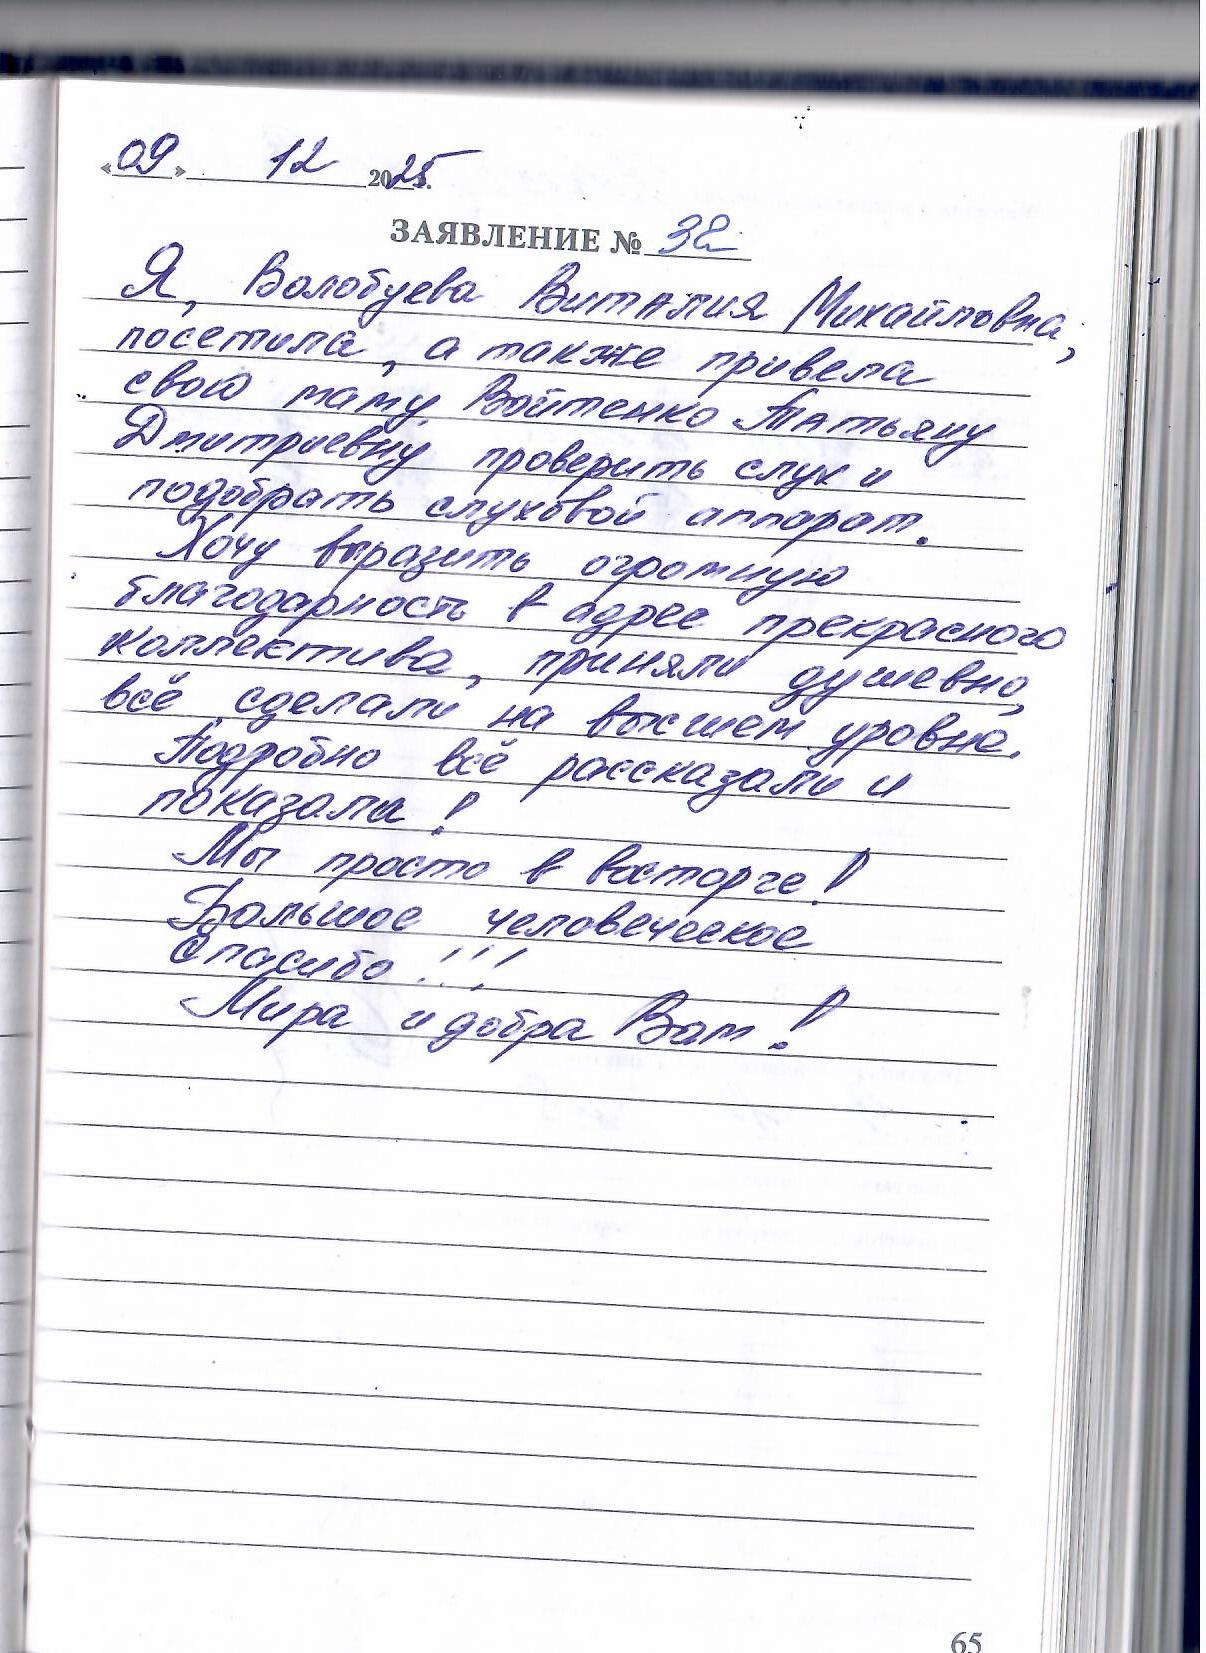 «09» 12 2025г.
ЗАЯВЛЕНИЕ № 32
Я, Волобуева Виталия Михайловна,
посетила, а также привела
свою маму Войтенко Татьяну
Дмитриевну проверить слух и
подобрать слуховой аппарат.
Хочу выразить огромную
благодарность в адрес прекрасного
коллектива, приняли душевно,
всё сделали на высшем уровне.
Подробно всё рассказали и
показали!
Мы просто в восторге!
Большое человеческое
спасибо!!!
Мира и добра Вам!
65